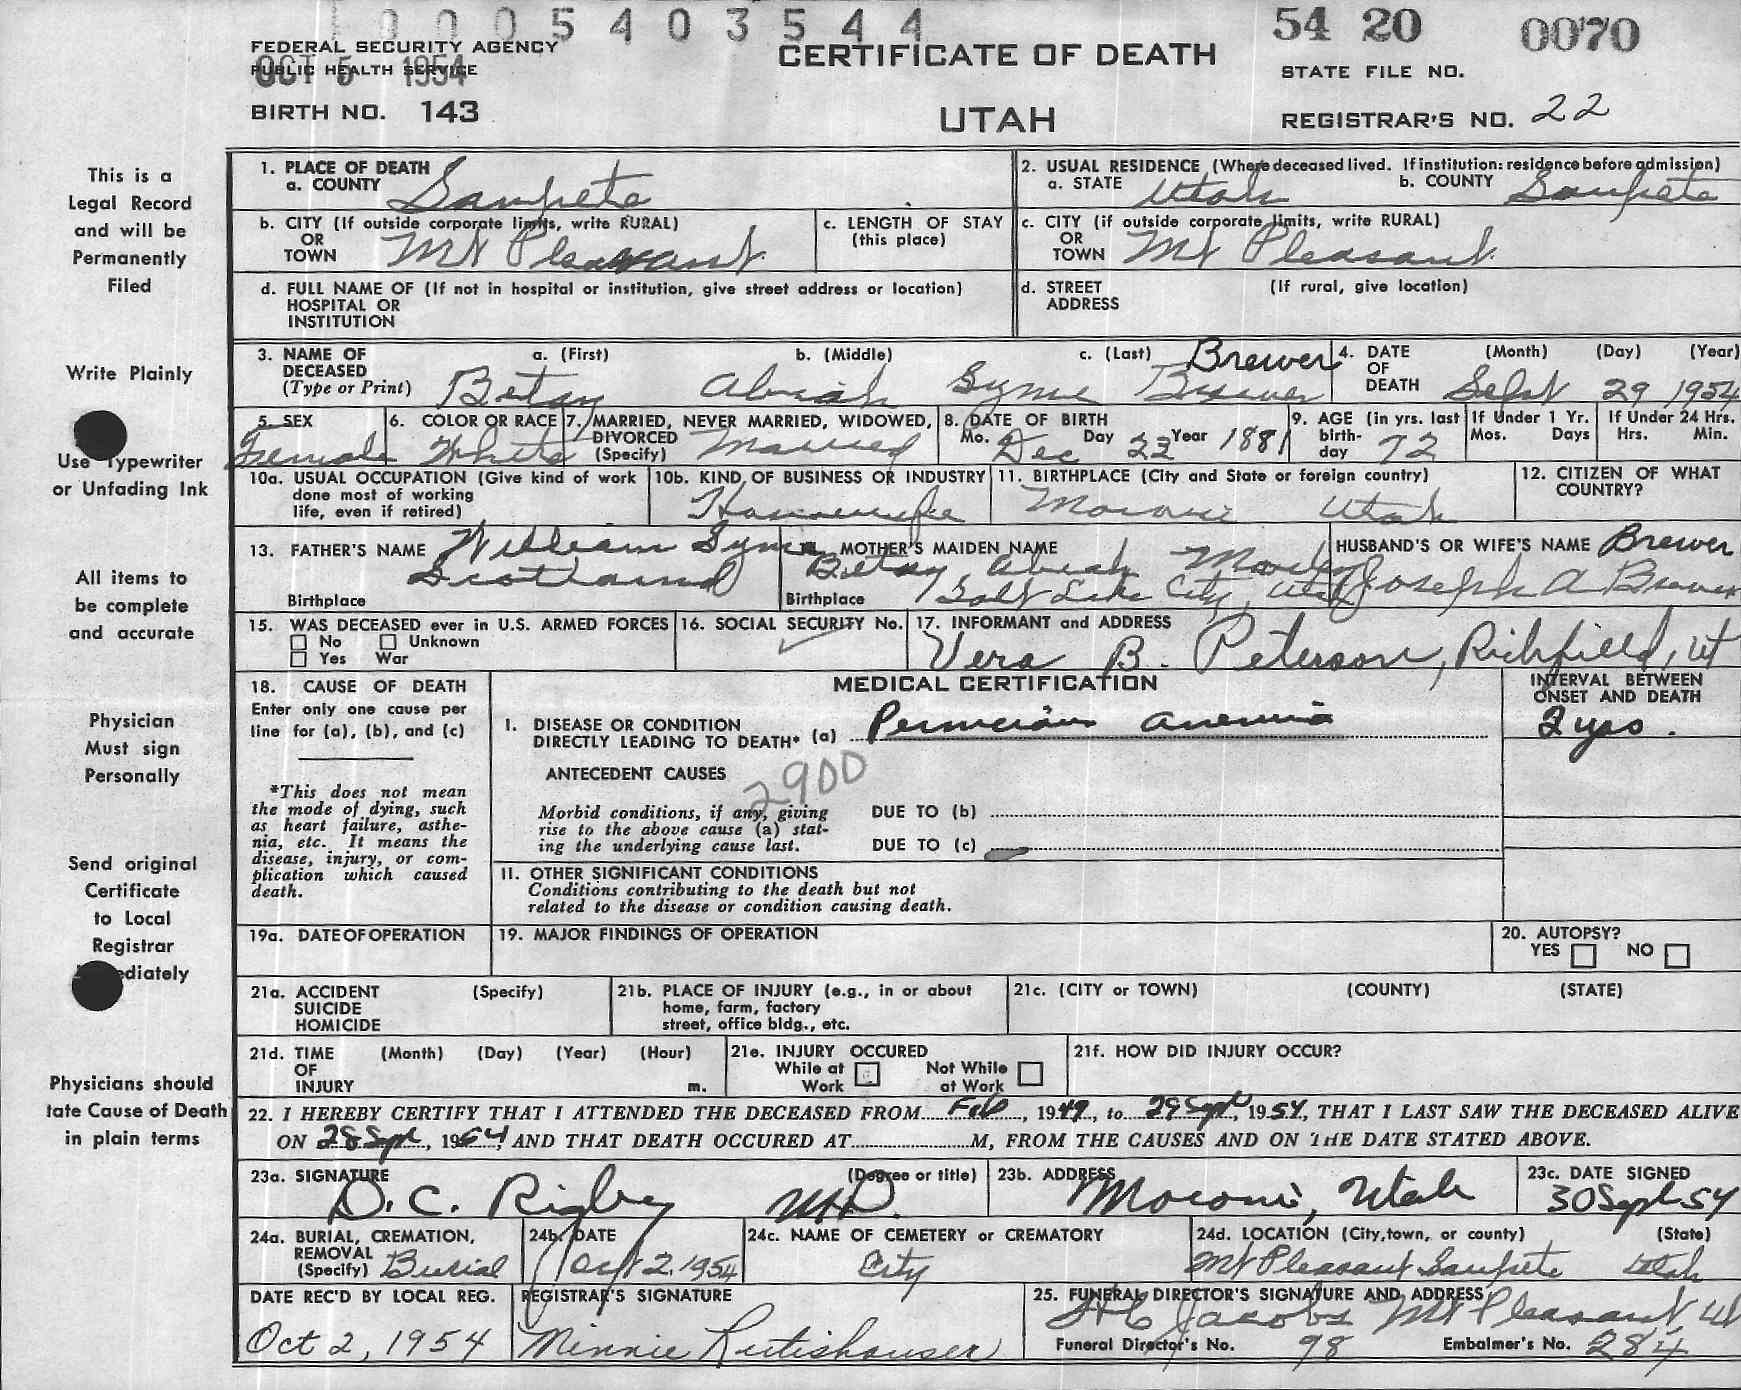 1 0 0 0 5 4 0 3 5 4 4
54 20 0070
FEDERAL SECURITY AGENCY
PUBLIC HEALTH SERVICE
OCT 5 1954
CERTIFICATE OF DEATH
STATE FILE NO.
BIRTH NO. 143
UTAH
REGISTRAR'S NO. 22
This is a
Legal Record
and will be
Permanently
Filed
Write Plainly
Use Typewriter
or Unfading Ink
All items to
be complete
and accurate
Physician
Must sign
Personally
Send original
Certificate
to Local
Registrar
ediately
Physicians should
tate Cause of Death
in plain terms
1. PLACE OF DEATH
a. COUNTY Sanpete
2. USUAL RESIDENCE (Where deceased lived. If institution: residence before admission)
a. STATE Utah b. COUNTY Sanpete
b. CITY (If outside corporate limits, write RURAL)
OR
TOWN Mt Pleasant
c. LENGTH OF STAY
(this place)
c. CITY (if outside corporate limits, write RURAL)
OR
TOWN Mt Pleasant
d. FULL NAME OF (If not in hospital or institution, give street address or location)
HOSPITAL OR
INSTITUTION
d. STREET (If rural, give location)
ADDRESS
3. NAME OF a. (First) b. (Middle) c. (Last) Brewer
DECEASED
(Type or Print) Betsy Abiah Syme Brewer
4. DATE (Month) (Day) (Year)
OF
DEATH Sept 29 1954
5. SEX
Female
6. COLOR OR RACE
White
7. MARRIED, NEVER MARRIED, WIDOWED,
DIVORCED
(Specify) Married
8. DATE OF BIRTH
Mo. Dec Day 22 Year 1881
9. AGE (in yrs. last
birth-
day 72
If Under 1 Yr.
Mos. Days
If Under 24 Hrs.
Hrs. Min.
10a. USUAL OCCUPATION (Give kind of work
done most of working
life, even if retired)
10b. KIND OF BUSINESS OR INDUSTRY
Housewife
11. BIRTHPLACE (City and State or foreign country)
Moroni Utah
12. CITIZEN OF WHAT
COUNTRY?
13. FATHER'S NAME William Syme
Scotland
Birthplace
MOTHER'S MAIDEN NAME
Betsy Abiah
Birthplace Salt Lake City, Utah
HUSBAND'S OR WIFE'S NAME Brewer
Joseph A Brewer
15. WAS DECEASED ever in U.S. ARMED FORCES
No Unknown
Yes War
16. SOCIAL SECURITY No.
17. INFORMANT and ADDRESS
Vera B. Peterson, Richfield, Ut
18. CAUSE OF DEATH
Enter only one cause per
line for (a), (b), and (c)
*This does not mean
the mode of dying, such
as heart failure, asthe-
nia, etc. It means the
disease, injury, or com-
plication which caused
death.
MEDICAL CERTIFICATION
INTERVAL BETWEEN
ONSET AND DEATH
I. DISEASE OR CONDITION
DIRECTLY LEADING TO DEATH* (a) Pernicious anemia
2 yrs.
ANTECEDENT CAUSES
2900
Morbid conditions, if any, giving
rise to the above cause (a) stat-
ing the underlying cause last.
DUE TO (b)
DUE TO (c)
II. OTHER SIGNIFICANT CONDITIONS
Conditions contributing to the death but not
related to the disease or condition causing death.
19a. DATE OF OPERATION
19. MAJOR FINDINGS OF OPERATION
20. AUTOPSY?
YES NO
21a. ACCIDENT (Specify)
SUICIDE
HOMICIDE
21b. PLACE OF INJURY (e.g., in or about
home, farm, factory
street, office bldg., etc.
21c. (CITY or TOWN) (COUNTY) (STATE)
21d. TIME (Month) (Day) (Year) (Hour)
OF
INJURY m.
21e. INJURY OCCURED
While at Not While
Work at Work
21f. HOW DID INJURY OCCUR?
22. I HEREBY CERTIFY THAT I ATTENDED THE DECEASED FROM Feb, 1949, to 29 Sept, 1954, THAT I LAST SAW THE DECEASED ALIVE
ON 28 Sept, 1954, AND THAT DEATH OCCURED AT M, FROM THE CAUSES AND ON THE DATE STATED ABOVE.
23a. SIGNATURE (Degree or title)
D. C. Rigby M.D.
23b. ADDRESS
Moroni, Utah
23c. DATE SIGNED
30 Sept 54
24a. BURIAL, CREMATION,
REMOVAL
(Specify) Burial
24b. DATE
Oct 2, 1954
24c. NAME OF CEMETERY or CREMATORY
City
24d. LOCATION (City, town, or county) (State)
Mt Pleasant Sanpete Utah
DATE REC'D BY LOCAL REG.
Oct 2, 1954
REGISTRAR'S SIGNATURE
Minnie Rutishauser
25. FUNERAL DIRECTOR'S SIGNATURE AND ADDRESS
Jacobs Mt Pleasant, Ut
Funeral Director's No. 98 Embalmer's No. 284